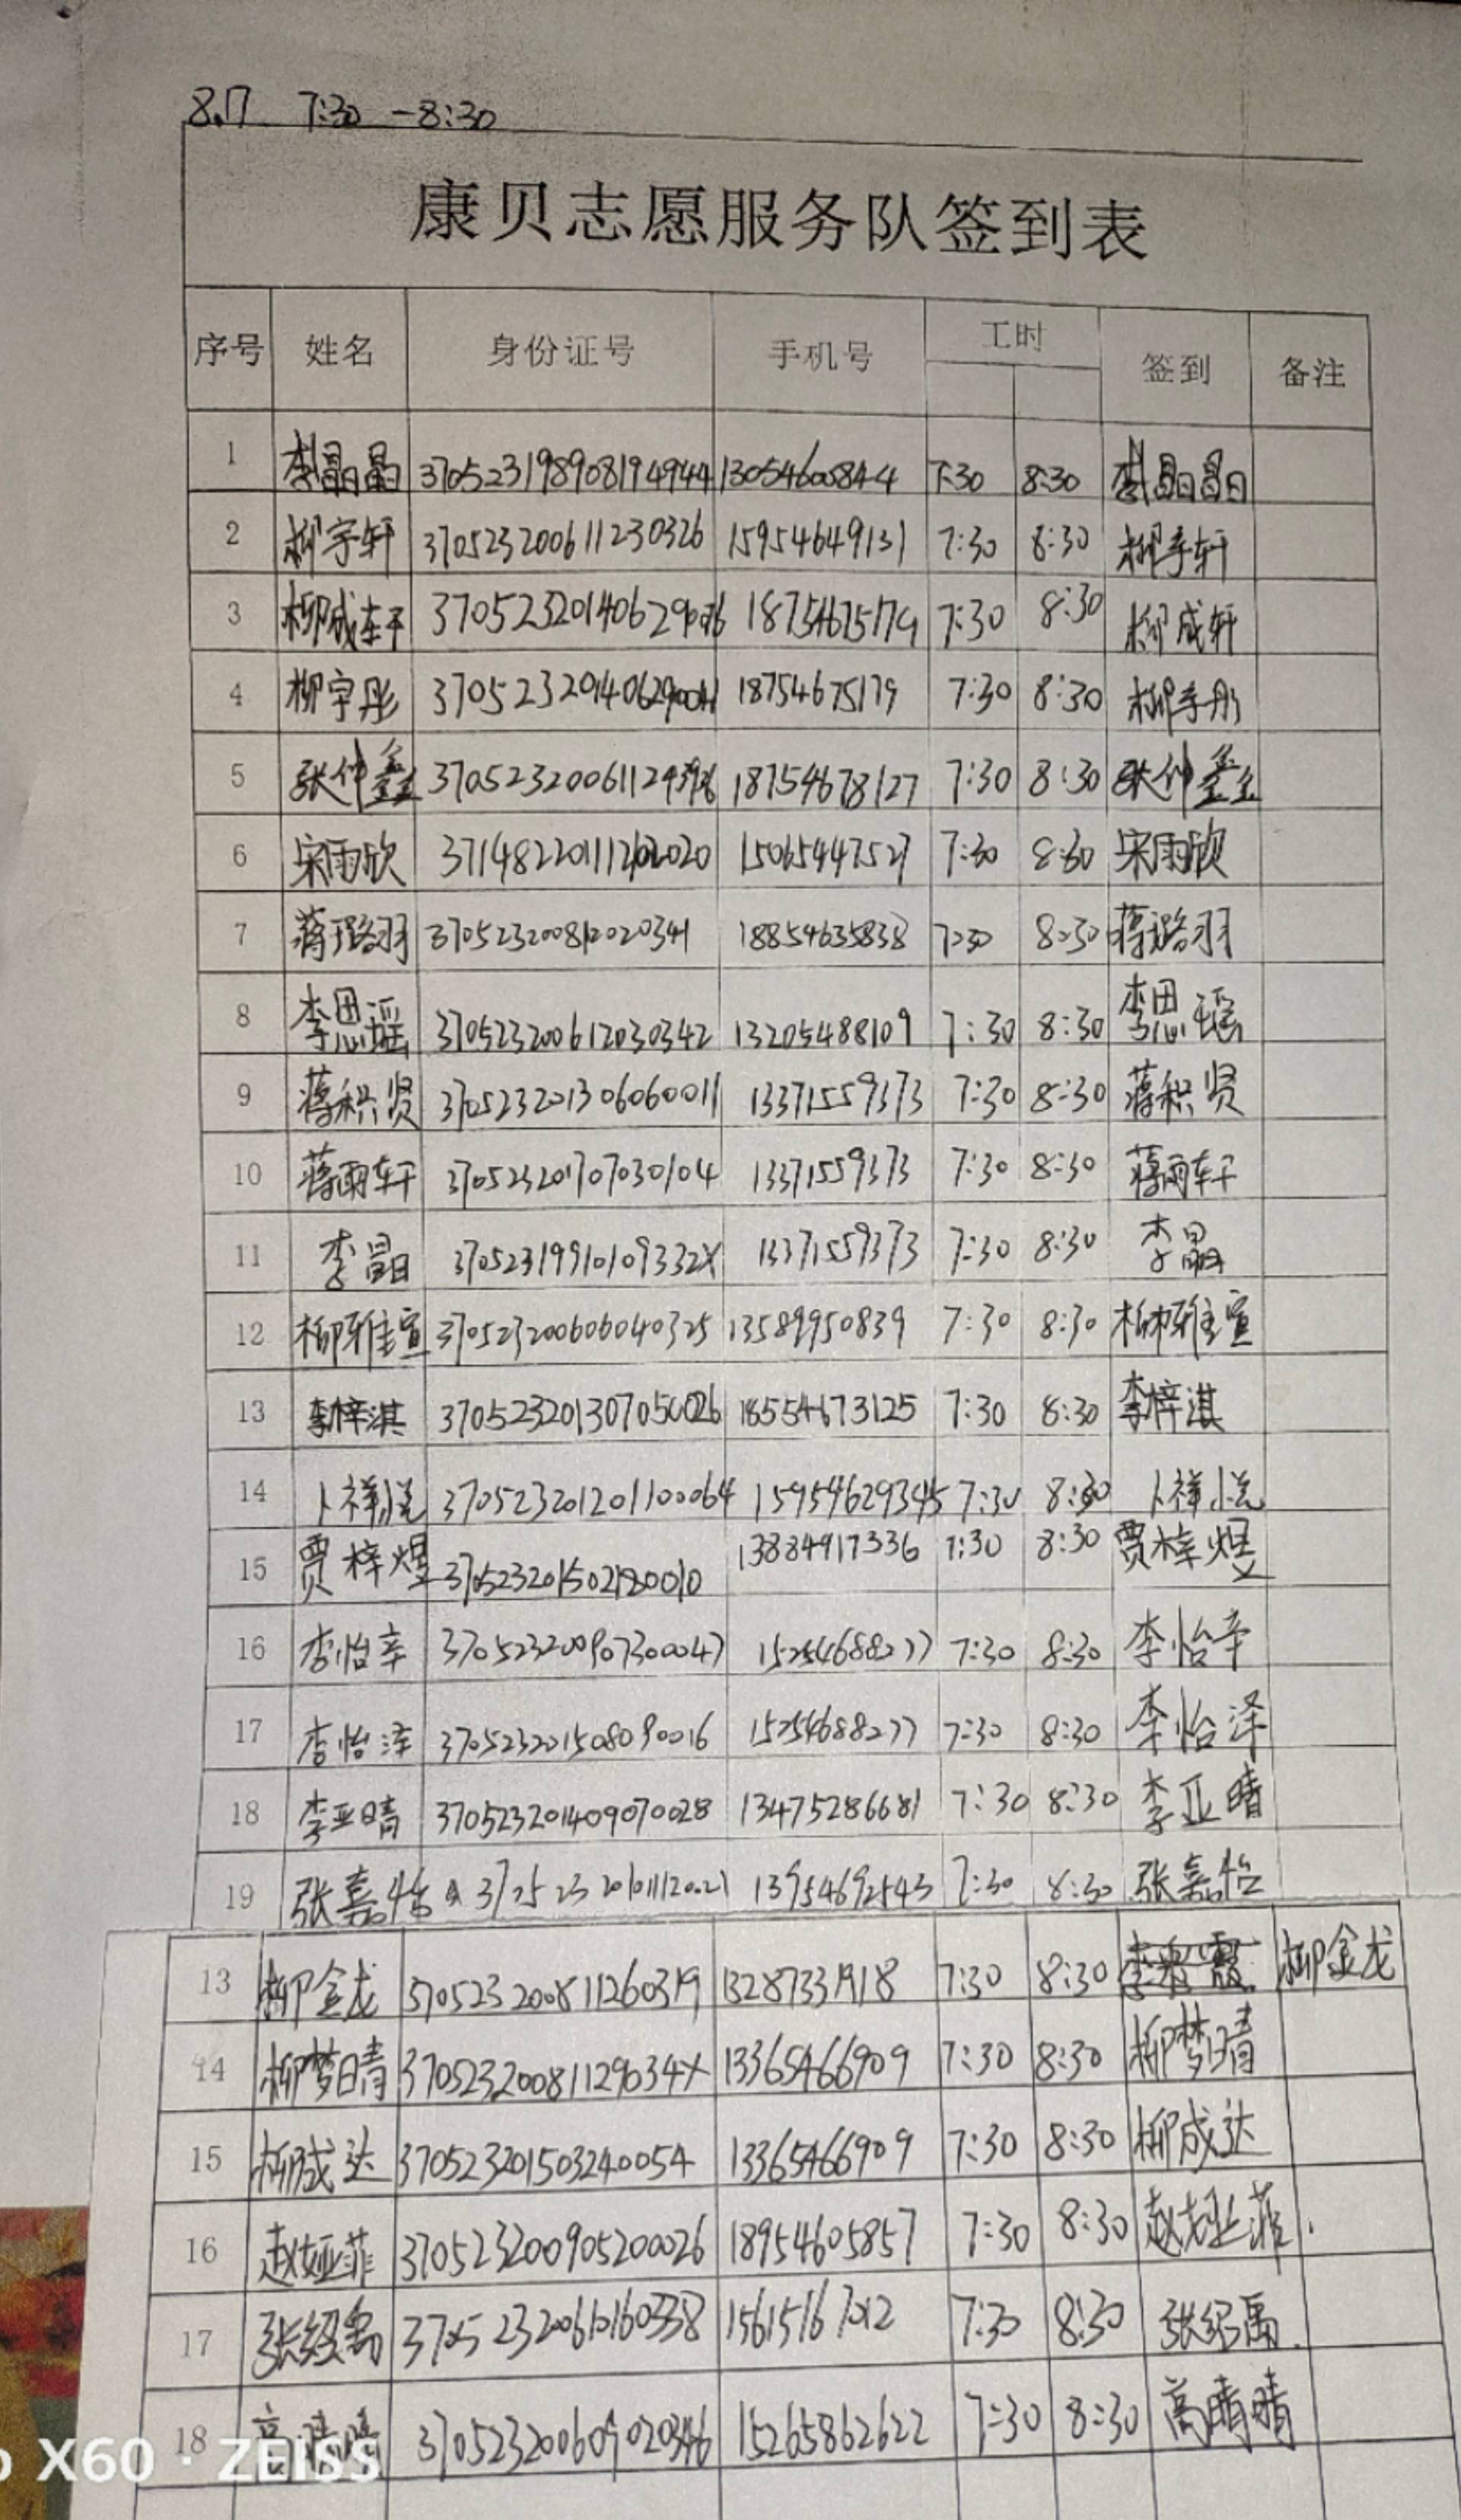 8.17 7:30 -8:30
康贝志愿服务队签到表
序号 姓名 身份证号 手机号 工时 签到 备注
1 李晶晶 370523198908194944 13054600844 7:30 8:30 李晶晶
2 柳宇轩 370523200611230326 15954649131 7:30 8:30 柳宇轩
3 柳成轩 18754675179 7:30 8:30 柳成轩
4 柳宇彤 18754675179 7:30 8:30 柳宇彤
5 张仲鑫 18754678127 7:30 8:30 张仲鑫
6 宋雨欣 15065447527 7:30 8:30 宋雨欣
7 蒋璐羽 370523200812020341 18854635838 7:30 8:30 蒋璐羽
8 李思瑶 370523200612030342 13205488109 7:30 8:30 李思瑶
9 蒋积贤 370523201306060011 13371559373 7:30 8:30 蒋积贤
10 蒋雨轩 370523201707030104 13371559373 7:30 8:30 蒋雨轩
11 李晶 37052319910109332X 13371559373 7:30 8:30 李晶
12 柳雅宣 370523200606040325 13589950839 7:30 8:30 柳雅宣
13 李梓淇 370523201307050026 18554673125 7:30 8:30 李梓淇
14 卜祥悦 370523201201100064 15954629345 7:30 8:30 卜祥悦
15 贾梓煜 370523201502180010 13884917336 7:30 8:30 贾梓煜
16 李怡辛 370523200907300047 15254688277 7:30 8:30 李怡辛
17 李怡泽 370523201508090016 15254688277 7:30 8:30 李怡泽
18 李亚晴 370523201409070028 13475286681 7:30 8:30 李亚晴
19 张嘉怡 13954692543 7:30 8:30 张嘉怡
13 柳金龙 370523200811260319 7:30 8:30 柳金龙
14 柳梦晴 37052320081129034X 13365466909 7:30 8:30 柳梦晴
15 柳成达 370523201503240054 13365466909 7:30 8:30 柳成达
16 赵娅菲 370523200905200026 18954605857 7:30 8:30 赵娅菲
17 15615167012 7:30 8:30
18 高晴晴 15265862622 7:30 8:30 高晴晴
X60 · ZEISS